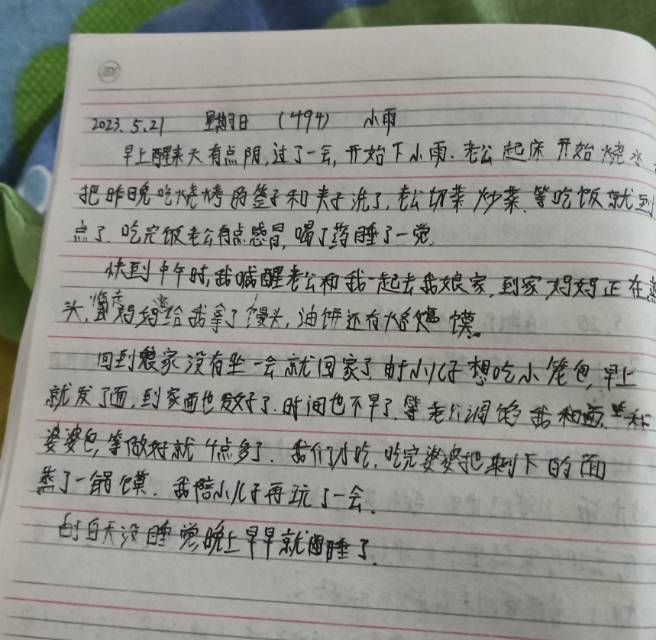 2023.5.21 星期日 (494) 小雨
早上醒来天有点阴,过了一会,开始下小雨.老公起床开始烧火
把昨晚吃烧烤的签子和夹子洗了,老公切菜炒菜.等吃饭就到
点了.吃完饭老公有点感冒,喝了药睡了一觉.
快到中午时,我喊醒老公和我一起去我娘家,到家妈妈正在蒸
头,临走妈妈给我拿了馒头,油饼还有馍.
回到娘家没有坐一会就回家了由于小儿子想吃小笼包,早上
就发了面,到家面也发好了.时间也不早了.等老公调馅我和面.
婆婆包,等做好就4点多了.我们才吃.吃完婆婆把剩下的面
蒸了一锅馍.我陪小儿子再玩了一会.
由白天没睡觉,晚上早早就困睡了.